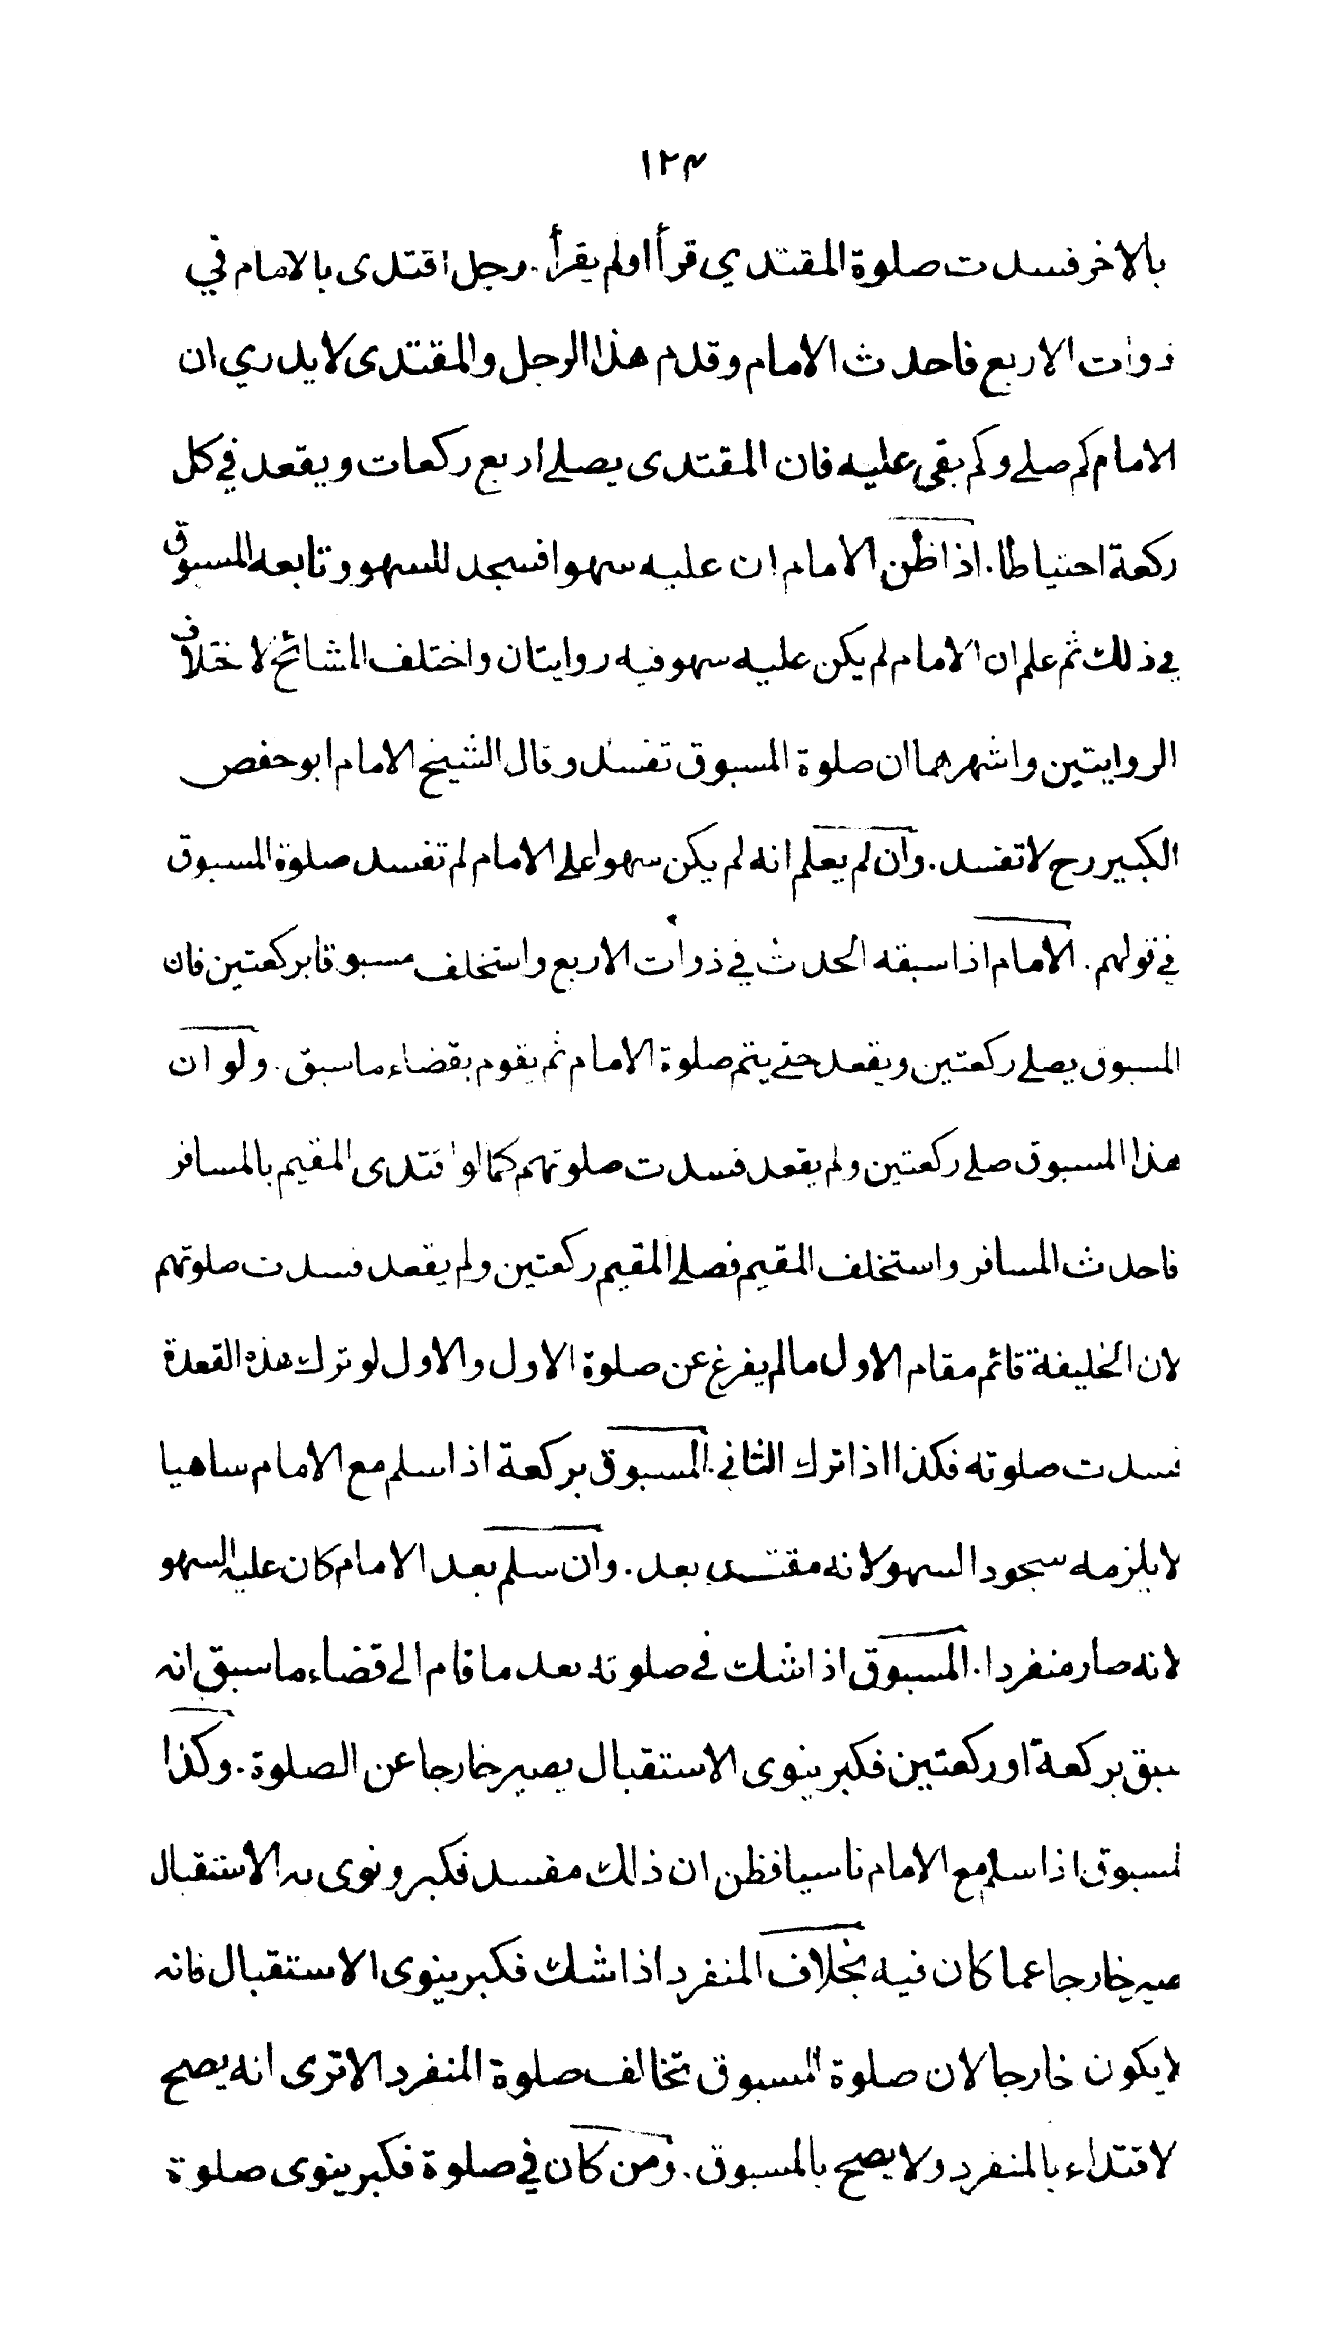 ١٢٣
بالاخر فسدت صلوة المقتدي قرأ اولم يقرأ. رجل اقتدى بالامام في
ذوات الاربع فاحدث الامام وقدم هذا الرجل والمقتدى لا يدري ان
الامام كم صلے وكم بقى عليه فان المقتدى يصلے اربع ركعات ويقعد في كل
ركعة احتياطا. اذا ظن الامام ان عليه سهوا فسجد للسهو وتابعه المسبوق
في ذلك ثم علم ان الامام لم يكن عليه سهو فيه روايتان واختلف المشائخ لاختلاف
الروايتين واشهرهما ان صلوة المسبوق تفسد وقال الشيخ الامام ابو حفص
الكبير رح لا تفسد. وان لم يعلم انه لم يكن سهوا على الامام لم تفسد صلوة المسبوق
في قولهم. الامام اذا سبقه الحدث في ذوات الاربع واستخلف مسبوقا بركعتين فان
المسبوق يصلے ركعتين ويقعد حتے يتم صلوة الامام ثم يقوم بقضاء ما سبق. ولو ان
هذا المسبوق صلے ركعتين ولم يقعد فسدت صلوتهم كما لو اقتدى المقيم بالمسافر
فاحدث المسافر واستخلف المقيم فصلے المقيم ركعتين ولم يقعد فسدت صلوتهم
لان الخليفة قائم مقام الاول ما لم يفرغ عن صلوة الاول والاول لو ترك هذه القعدة
فسدت صلوته فكذا اذا ترك الثاني. المسبوق بركعة اذا سلم مع الامام ساهيا
لا يلزمه سجود السهو لانه مقتدي بعد. وان سلم بعد الامام كان عليه السهو
لانه صار منفردا. المسبوق اذا شك في صلوته بعد ما قام الى قضاء ما سبق انه
سبق بركعة او ركعتين فكبر ينوى الاستقبال يصير خارجا عن الصلوة. وكذا
لمسبوق اذا سلم مع الامام ناسيا فظن ان ذالك مفسد فكبر ونوى به الاستقبال
صير خارجا عما كان فيه بخلاف المنفرد اذا شك فكبر ينوى الاستقبال فانه
لا يكون خارجا لان صلوة المسبوق تخالف صلوة المنفرد الا ترى انه يصح
لاقتداء بالمنفرد ولا يصح بالمسبوق. ومن كان في صلوة فكبر ينوى صلوة